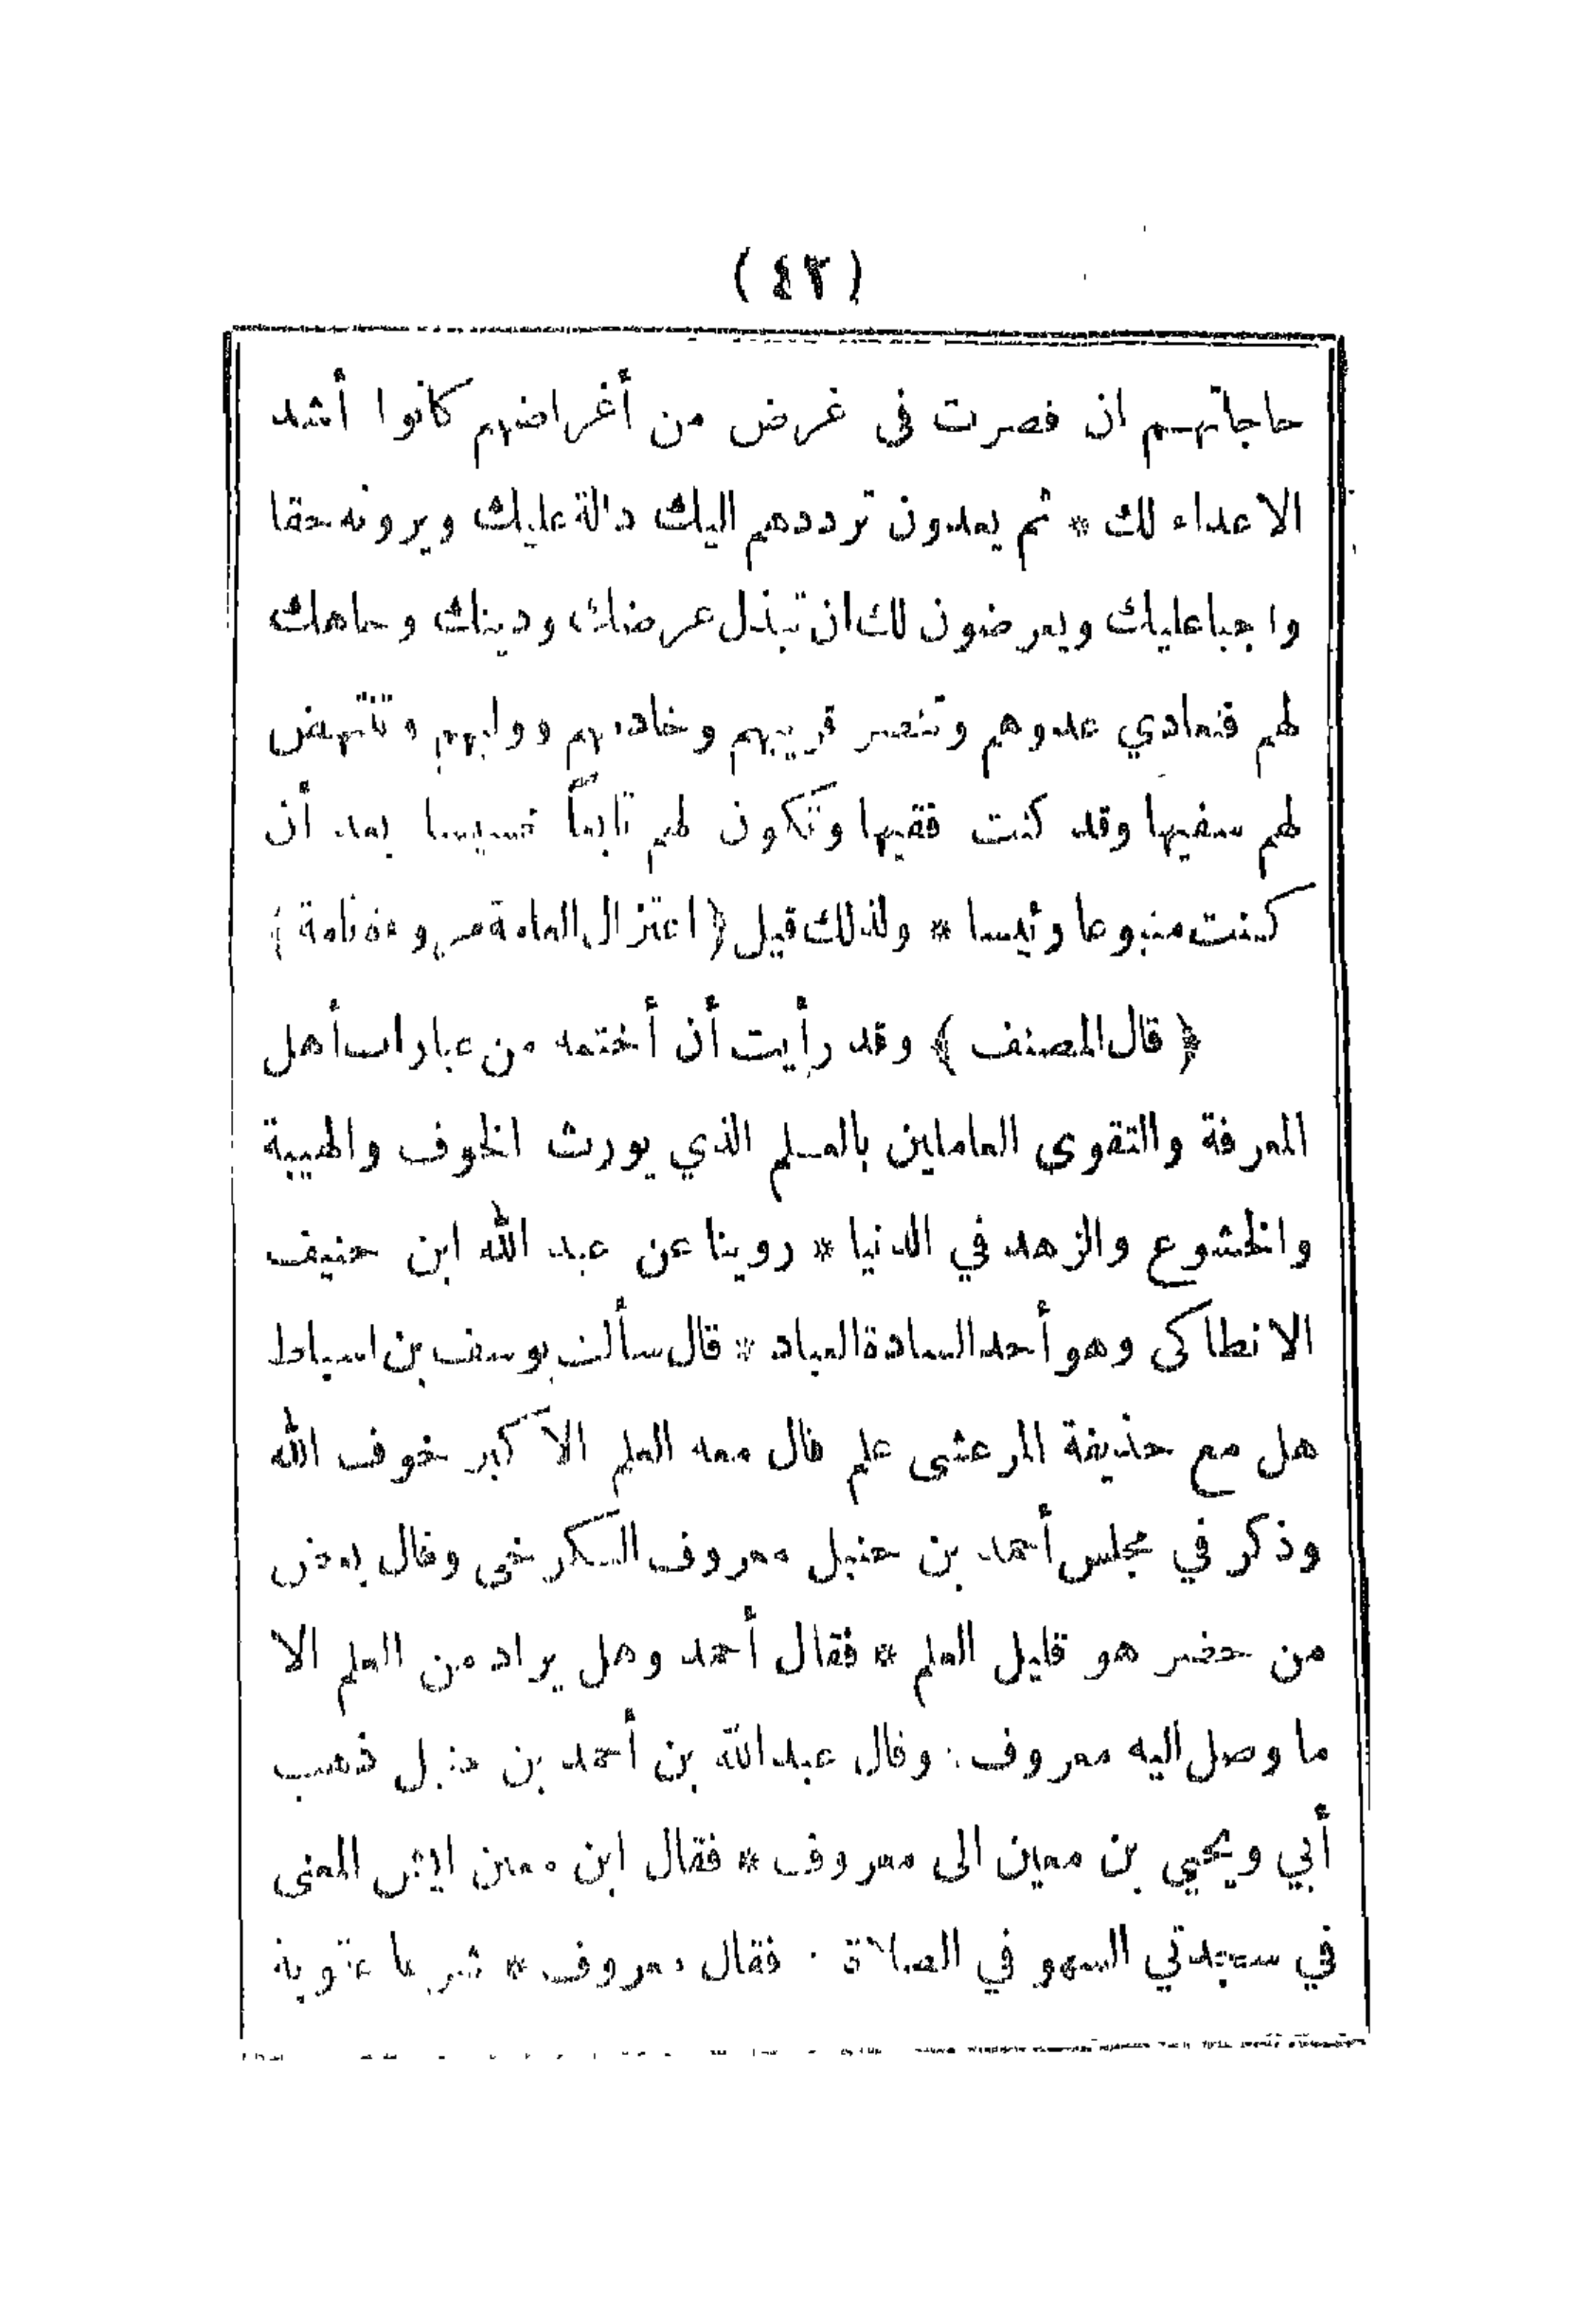 (٤٢)
حاجاتهم ان قصرت فى غرض من أغراضهم كانوا أشد
الاعداء لك * ثم يعدون ترددهم اليك دالة عليك ويرونه حقا
واجبا عليك ويعرضون لك ان تبذل عرضك ودينك وجاهك
لهم فتعادي عدوهم وتنصر قريبهم وخادمهم ووليهم وتنتهض
لهم سفيها وقد كنت فقيها وتكون لهم تابعاً خسيسا بعد أن
كنت متبوعا رئيسا * ولذلك قيل (اعتزال العامة مروءة تامة)
﴿ قال المصنف ﴾ وقد رأيت أن أختمه من عبارات أهل
المعرفة والتقوى العاملين بالعلم الذي يورث الخوف والهيبة
والخشوع والزهد في الدنيا * روينا عن عبد الله ابن حنيف
الانطاكى وهو أحد السادة العباد * قال سألت يوسف بن اسباط
هل مع حذيفة المرعشى علم قال معه العلم الاكبر خوف الله
وذكر في مجلس أحمد بن حنبل معروف الكرخى وقال بعض
من حضر هو قليل العلم * فقال أحمد وهل يراد من العلم الا
ما وصل اليه معروف: وقال عبدالله بن أحمد بن حنبل ذهب
أبي ويحيي بن معين الى معروف * فقال ابن معين ايش المعنى
في سجدتي السهو في الصلاة . فقال معروف * شرعا عقوبة